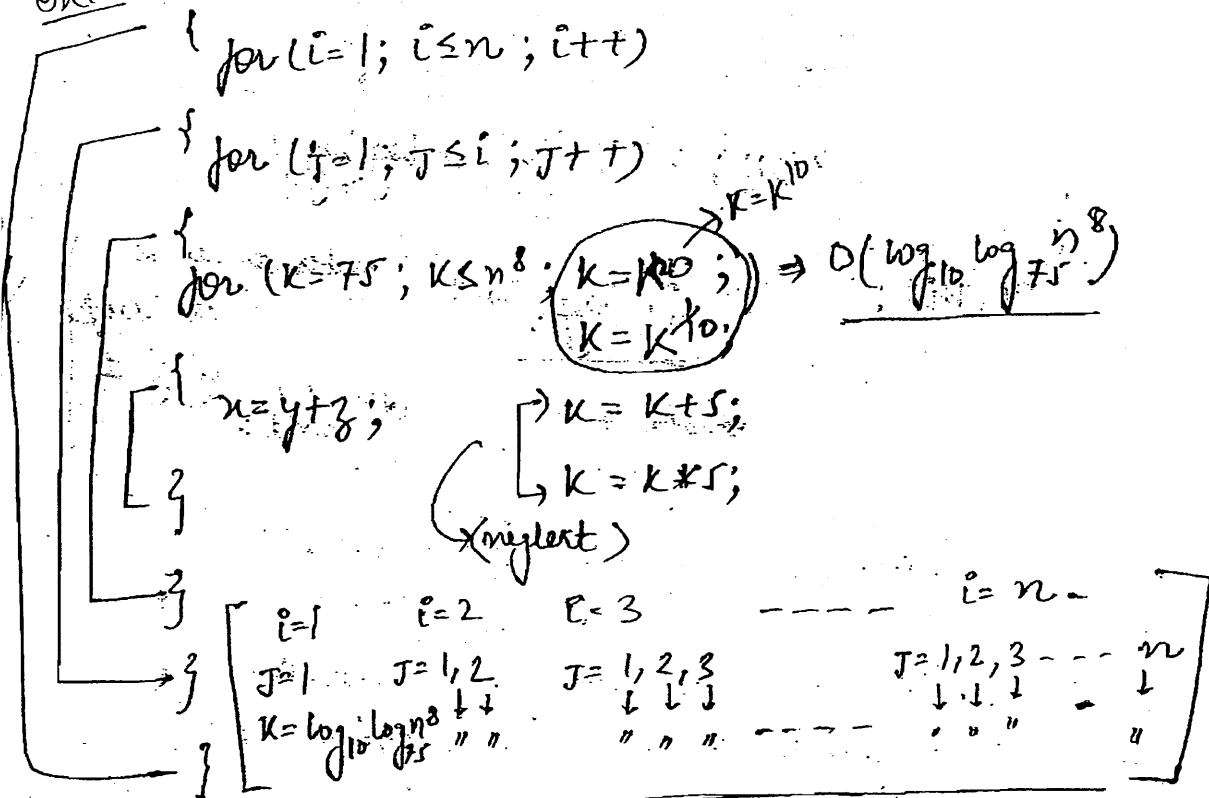 { for (i=1; i≤n; i++)
{ for (J=1; J≤i; J++)
K=K¹⁰
{ for (K=75; K≤n⁸; K= ; ) ⇒ O(log₁₀ log₇₅ n⁸)
K=K¹⁰.
{ x=y+z; → K = K+5;
} → K = K*5;
(neglert)
}
i=1 i=2 i=3 ---- i=n
} J=1 J=1,2 J=1,2,3 J=1,2,3 --- n
↓ ↓ ↓ ↓ ↓ ↓ ↓ ↓ ↓
K=log₁₀ log₇₅ n⁸ " " " " " ---- " " " "
}